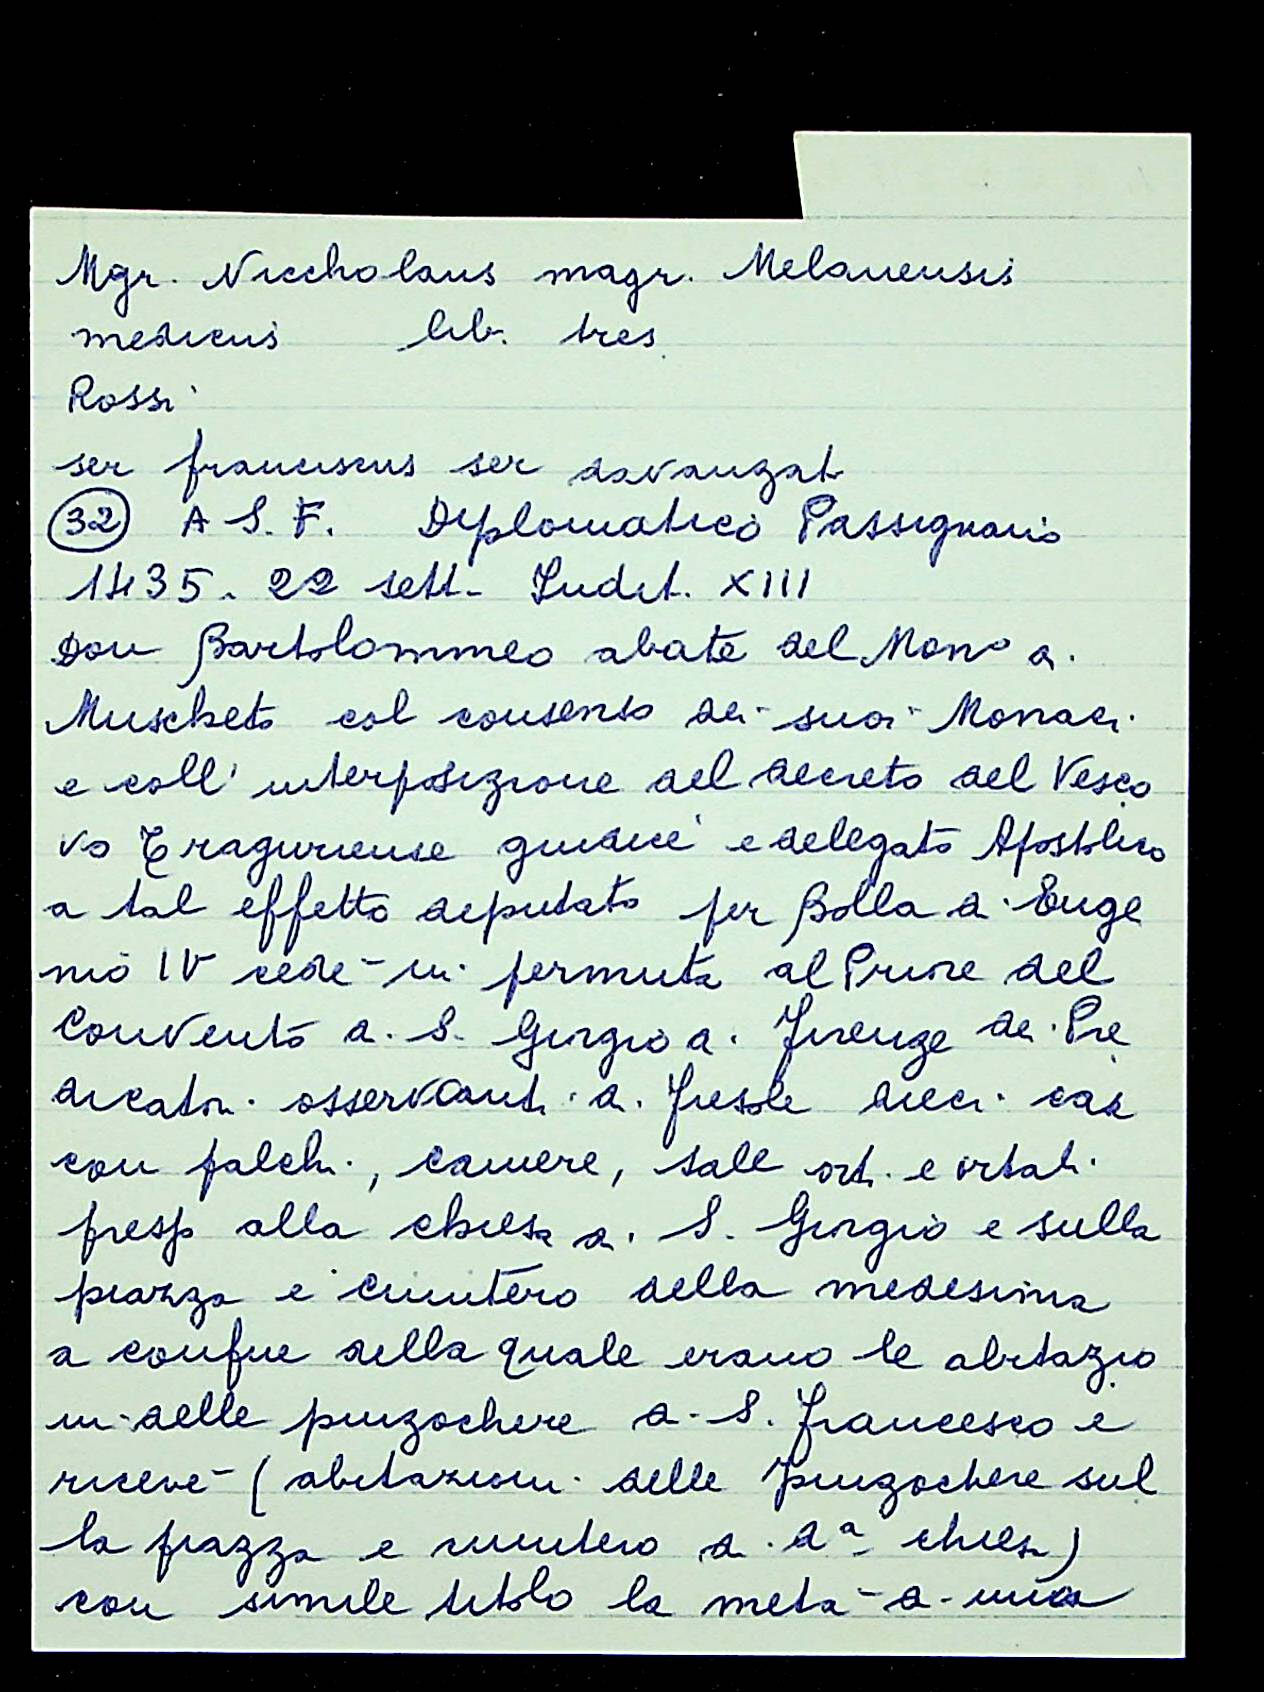 Mgr. Niccholaus magr. Melanensis
medicus lib. tres
Rossi
ser franciscus ser davanzat
32 A S. F. Diplomatico Passignano
1435. 22 sett. Indit. XIII
Don Bartolommeo abate del Mono di
Muscheto col consenso dei suoi Monaci
e coll' interposizione del decreto del Vesco
vo Traguriense giudice e delegato Apostolico
a tal effetto deputato per Bolla di Euge
nio IV cede in permuta al Priore del
Convento di S. Giorgio di Firenze dei Pre
dicatori osservanti di Fiesole dieci case
con palchi, camere, sale orti e ortali
presso alla chiesa di S. Giorgio e sulla
piazza e cimitero della medesima
a confine della quale erano le abitazio
ni delle pinzochere di S. Francesco e
riceve (abitazioni delle pinzochere sul
la piazza e cimitero di da chiesa)
con simile titolo la metà di una